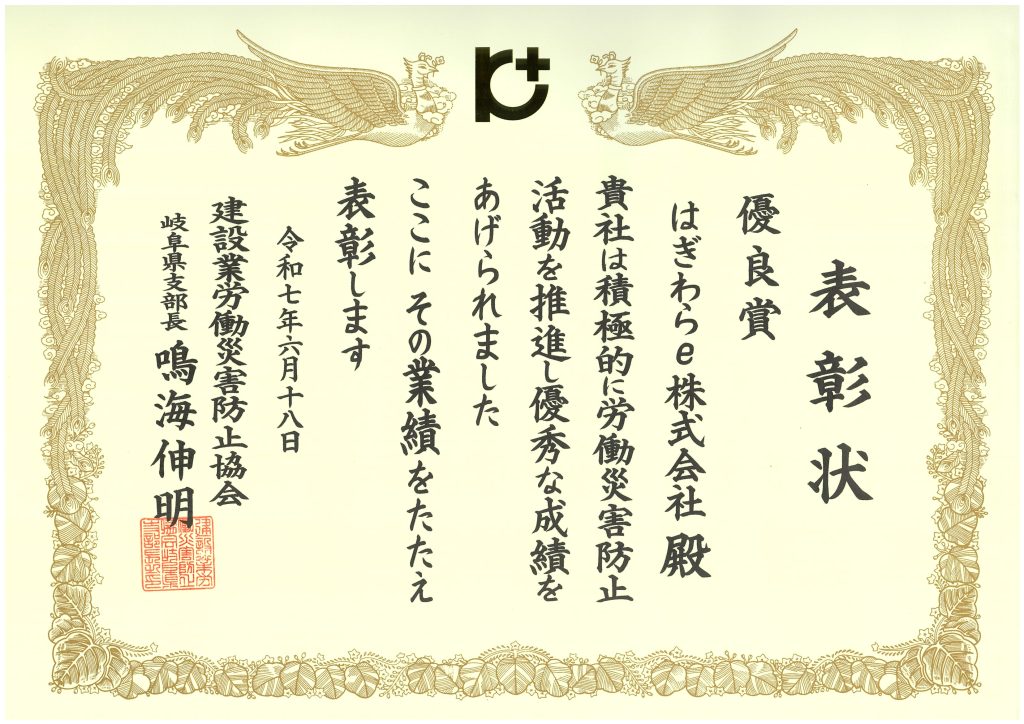 表彰状
優良賞
はぎわらe株式会社 殿
貴社は積極的に労働災害防止
活動を推進し優秀な成績を
あげられました
ここに その業績をたたえ
表彰します
令和七年六月十八日
建設業労働災害防止協会
岐阜県支部長 鳴海伸明